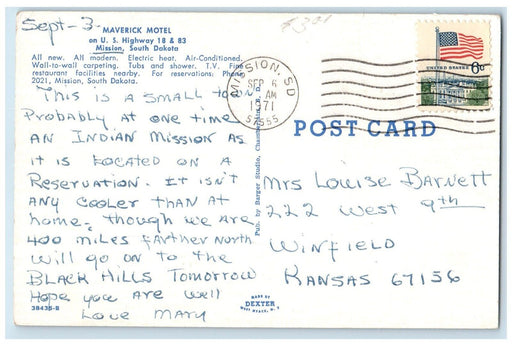 Sept-3-
MAVERICK MOTEL
on U. S. Highway 18 & 83
Mission, South Dakota
All new. All modern. Electric heat. Air-Conditioned.
Wall-to-wall carpeting. Tubs and shower. T.V. Fine
restaurant facilities nearby. For reservations: Phone
2021, Mission, South Dakota.
This is a small to
Probably at one time
an Indian Mission as
it is located on a
Reservation. It isn't
any cooler than at
home - though we are
400 miles farther north
Will go on to the
Black Hills Tomorrow
Hope you are well
Love Mary
38435-B
Pub. by Barger Studio,
MADE BY
DEXTER
WEST NYACK, N. Y.
MISSION, SD
SEP 6
AM
1971
57555
UNITED STATES
6c
POST CARD
Mrs Louise Barnett
222 West 9th
Winfield
Kansas 67156